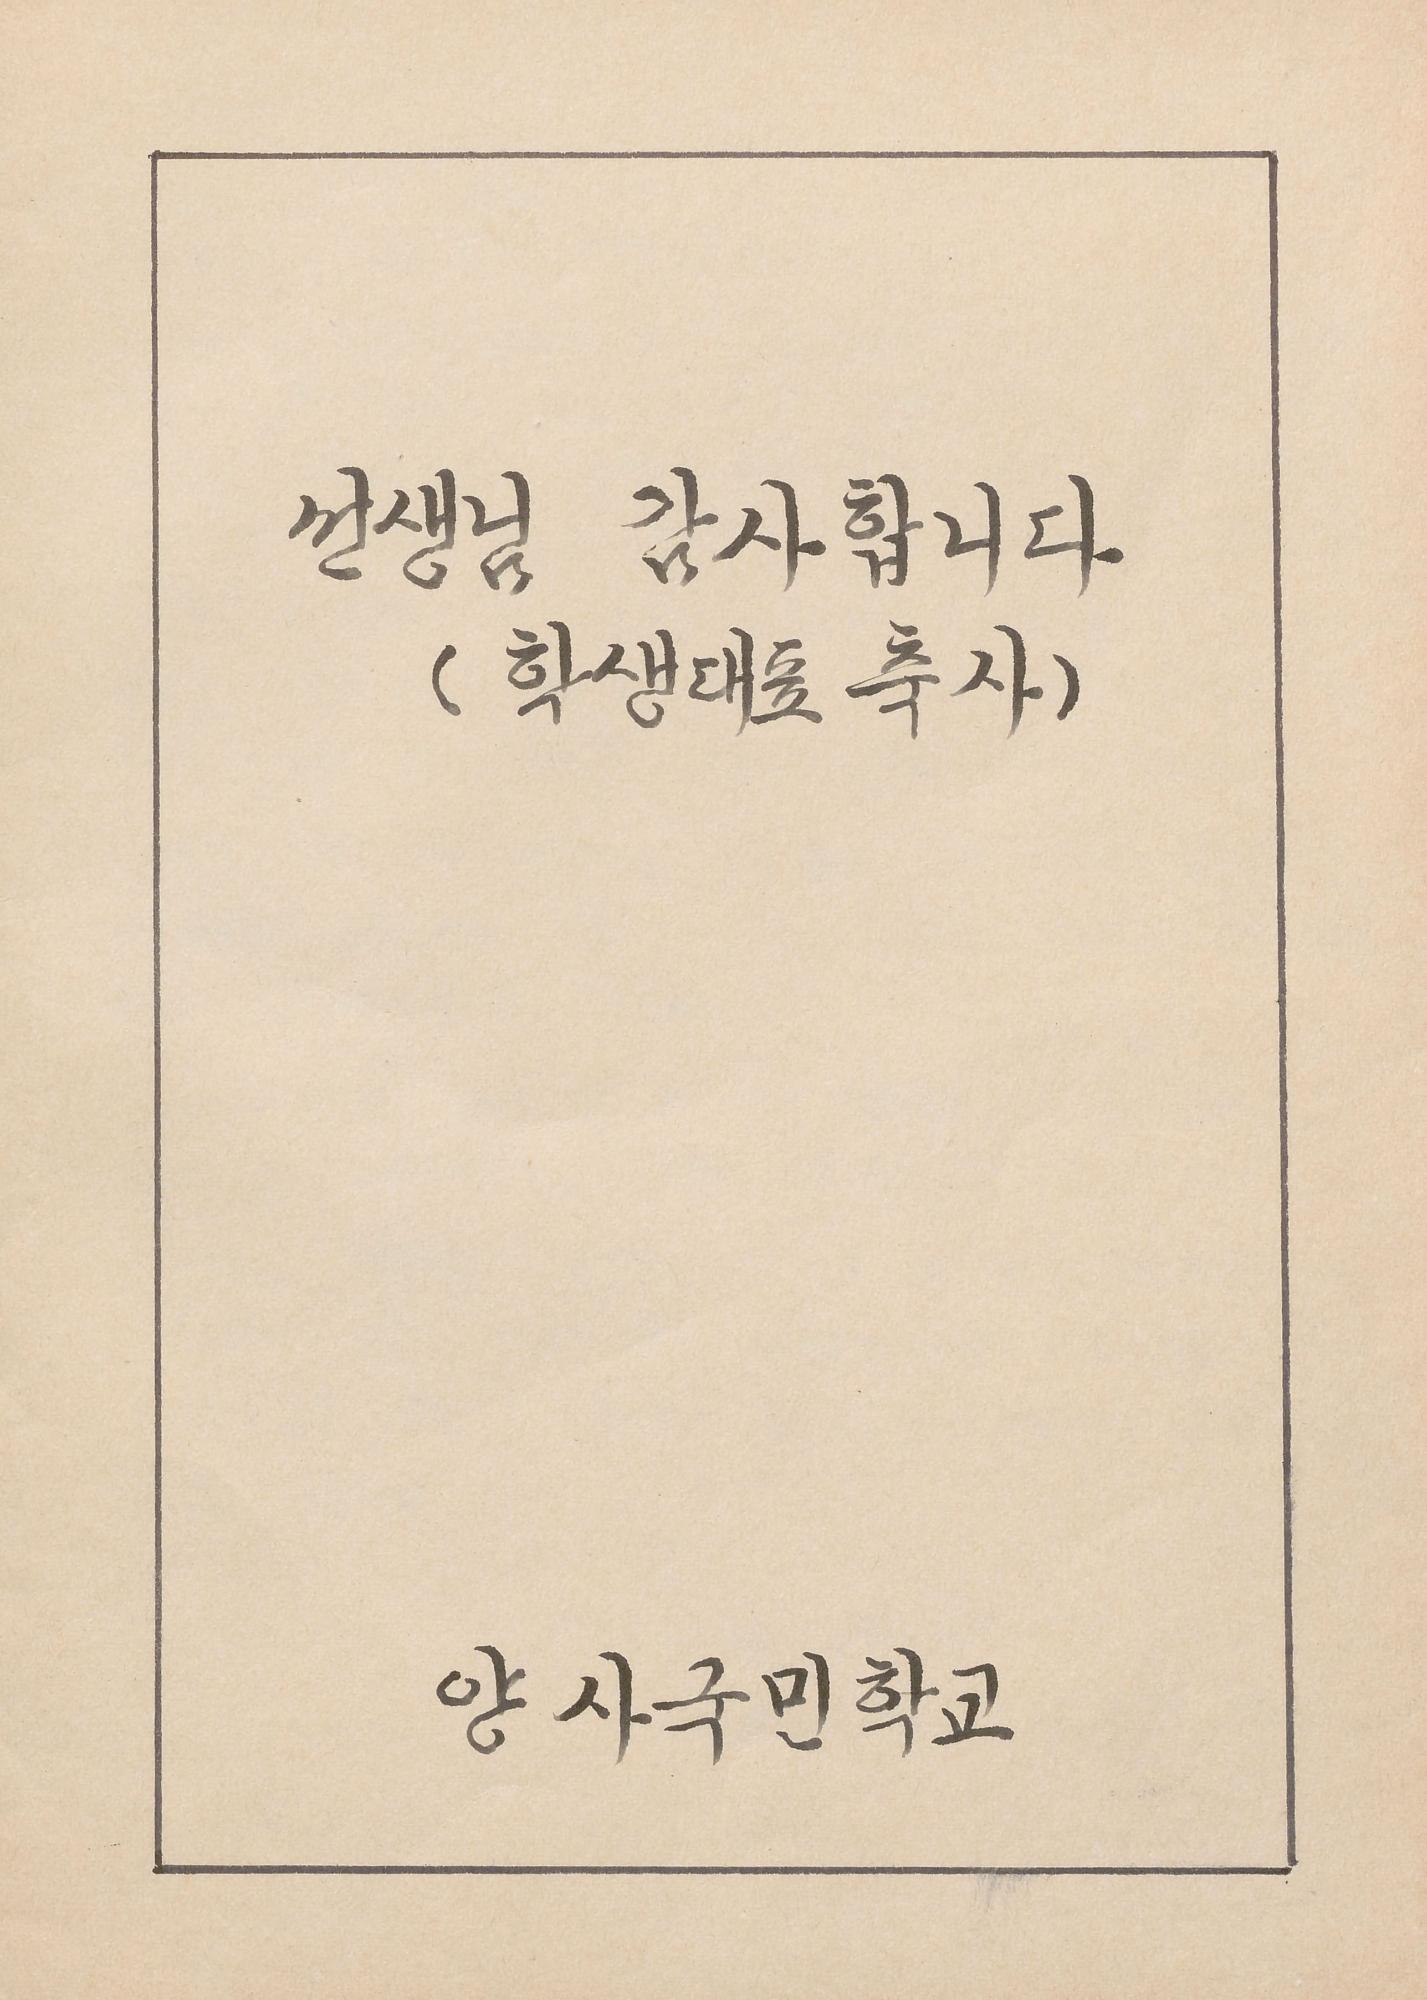 선생님 감사합니다
(학생대표 축사)
양사국민학교